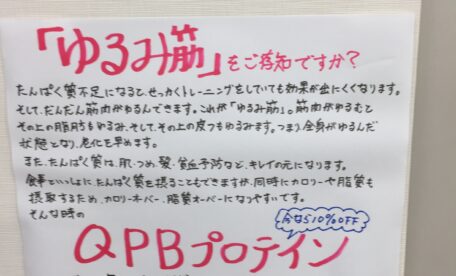 「ゆるみ筋」をご存知ですか？
たんぱく質不足になると、せっかくトレーニングをしていても効果が出にくくなります。
そして、だんだん筋肉がゆるんできます。これが「ゆるみ筋」。筋肉がゆるむと
その上の脂肪もゆるみ、そして、その上の皮フもゆるみます。つまり、全身がゆるんだ
状態となり、老化を早めます。
また、たんぱく質は、肌・つめ・髪・貧血予防など、キレイの元になります。
食事といっしょに、たんぱく質を摂ることもできますが、同時にカロリーや脂質も
摂取するため、カロリーオーバー、脂質オーバーになりやすいです。
そんな時の
今なら10%OFF
QPBプロテイン